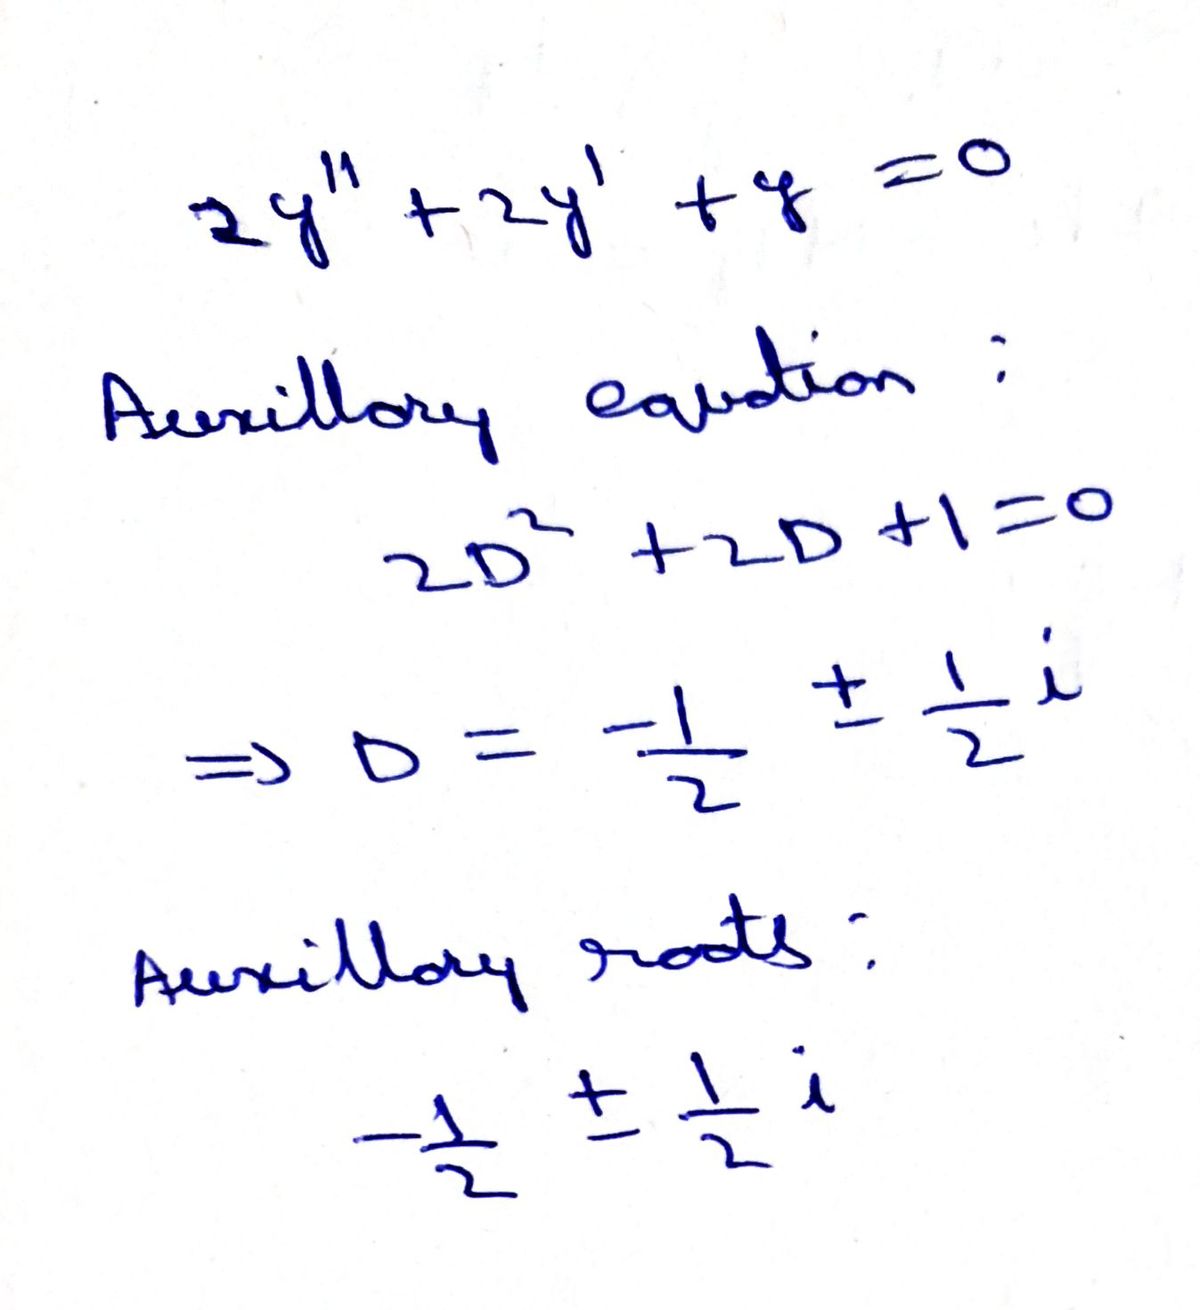 2y'' + 2y' + y = 0
Auxillory equation :
2D² + 2D + 1 = 0
⇒ D = -1/2 ± 1/2 i
Auxillory roots :
-1/2 ± 1/2 i